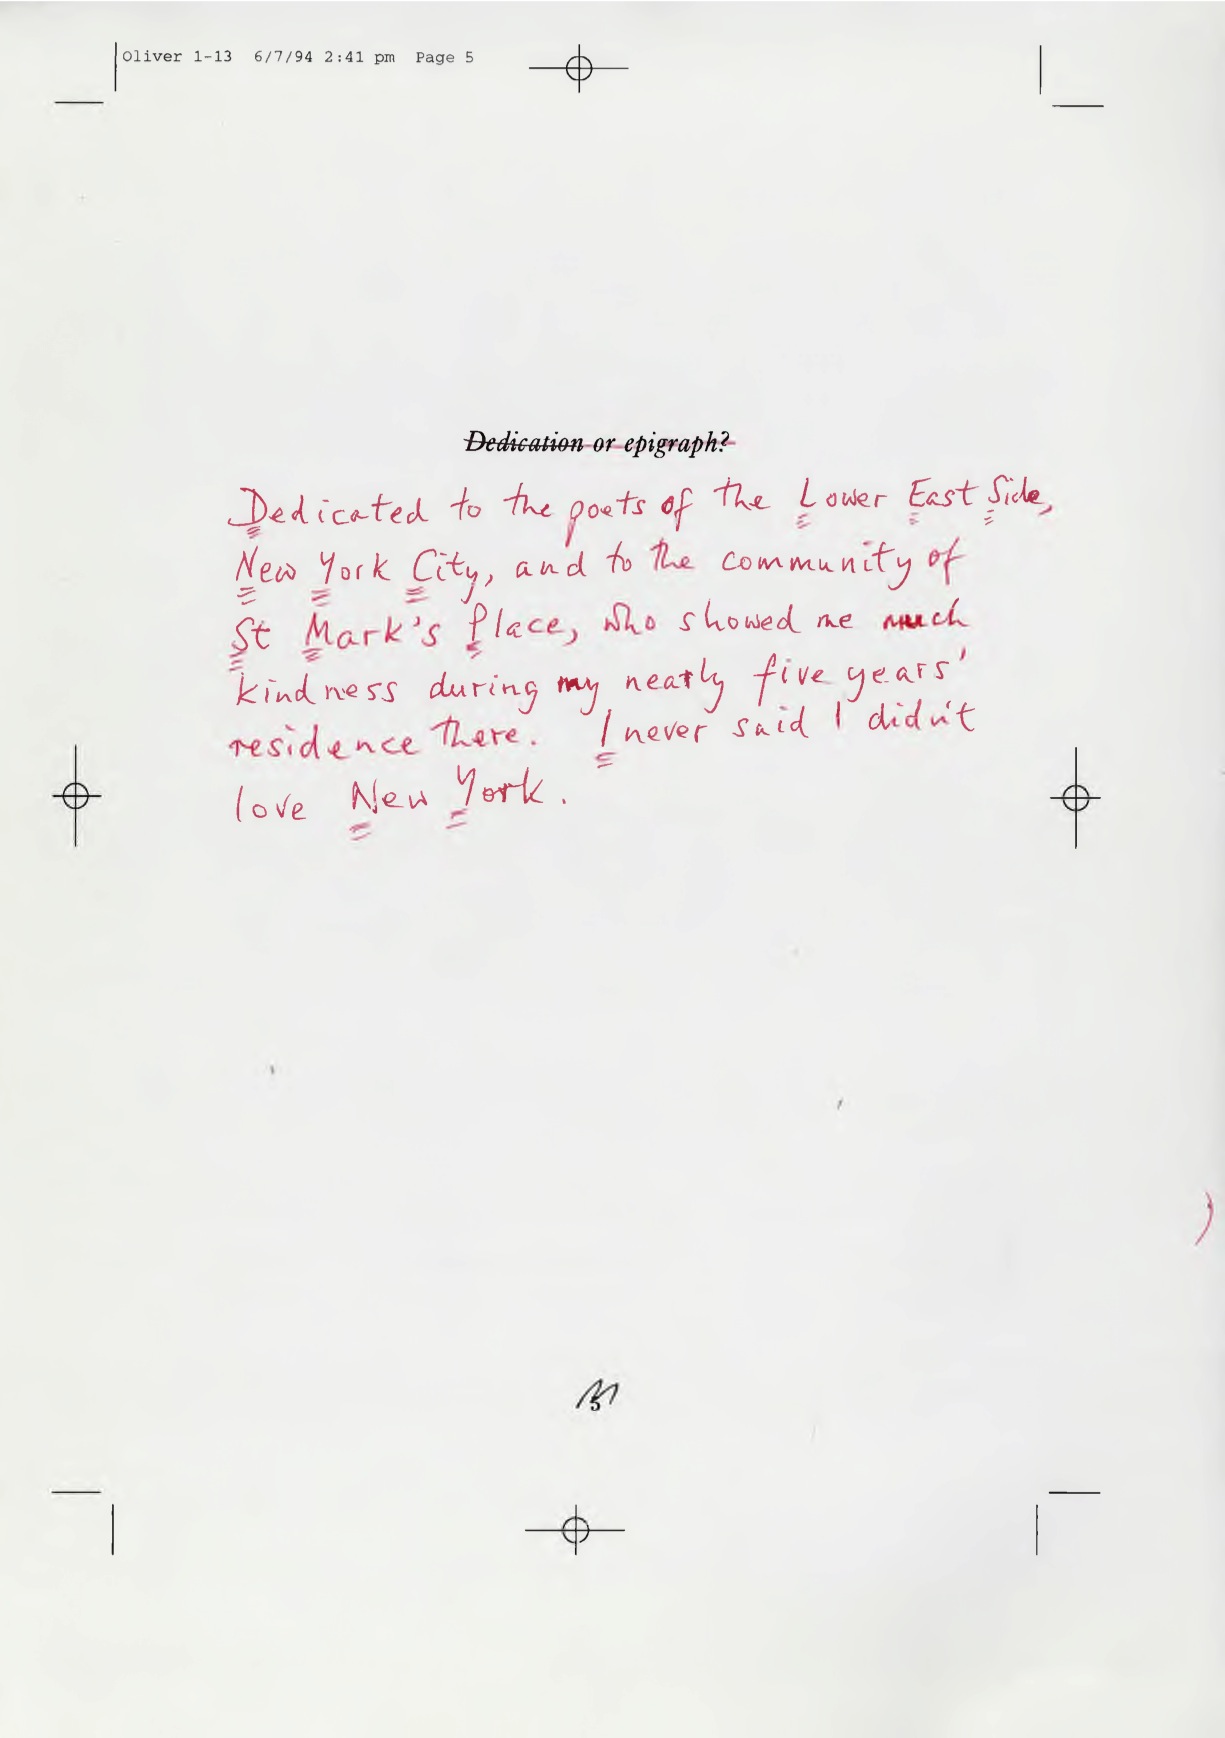 Oliver 1-13 6/7/94 2:41 pm Page 5
Dedication or epigraph?
Dedicated to the poets of the Lower East Side,
New York City, and to the community of
St Mark's Place, who showed me much
kindness during my nearly five years'
residence there. I never said I didn't
love New York.
5